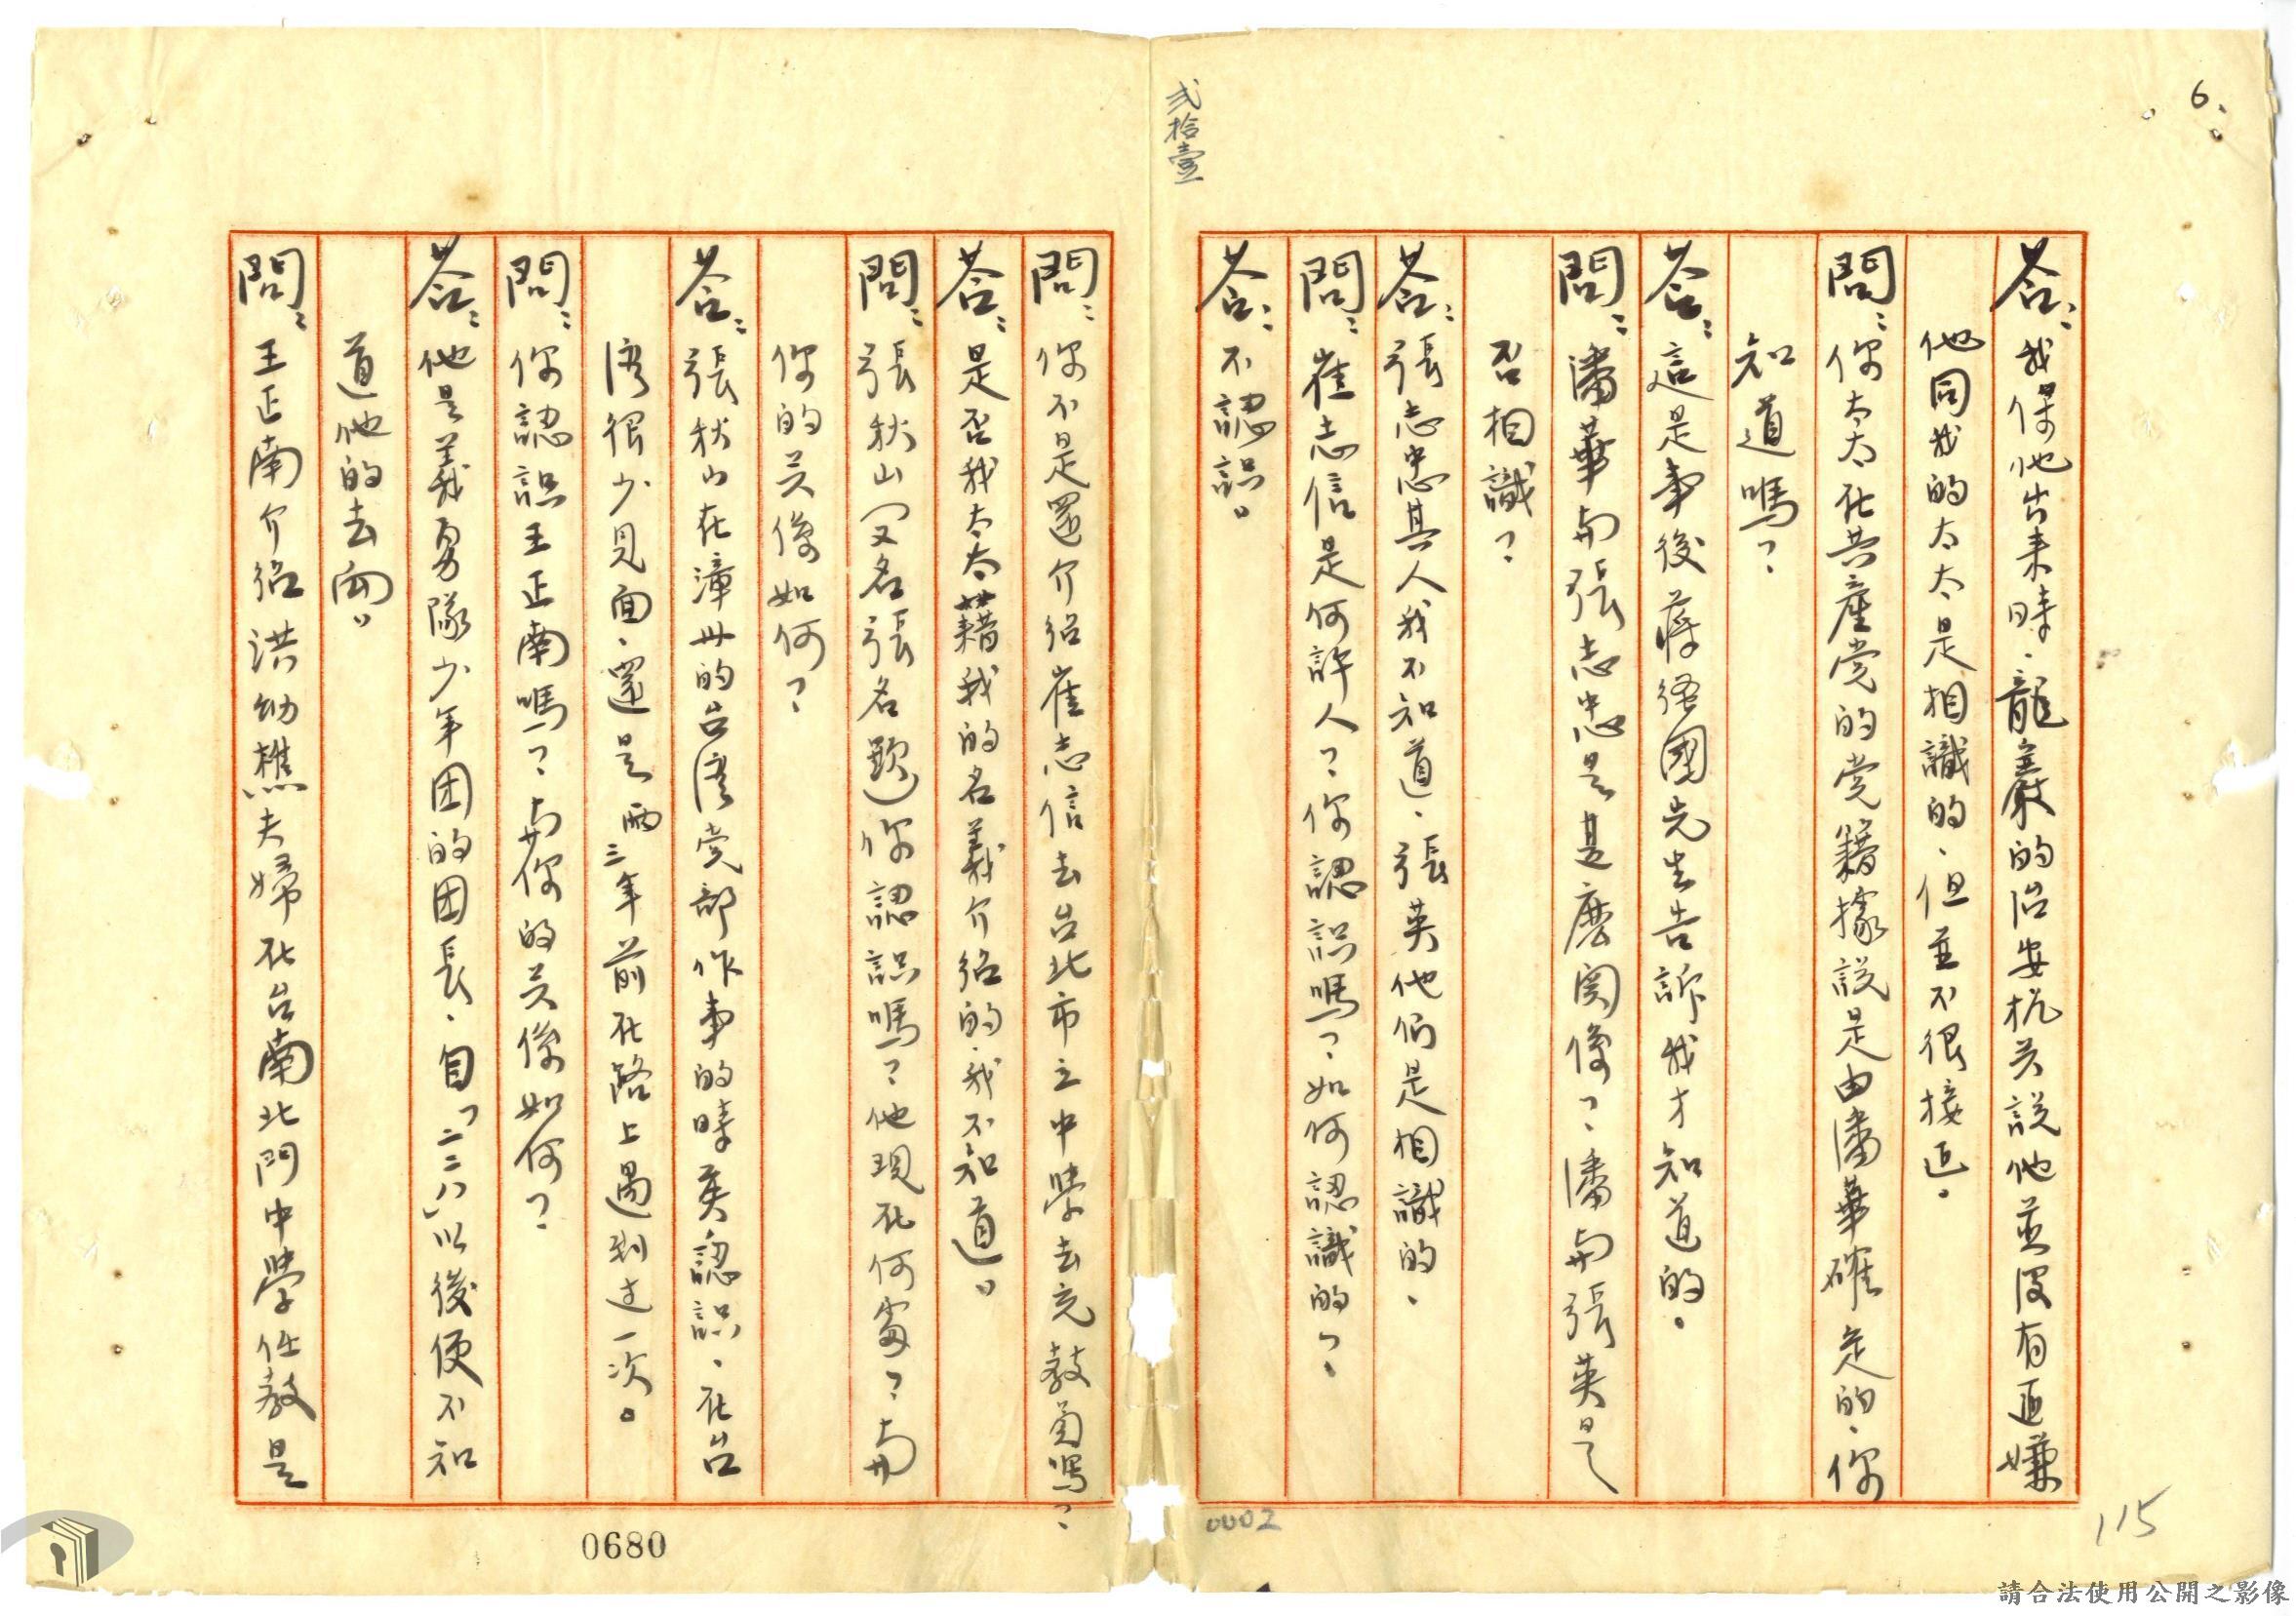 6、
答：我保他出來時、龍巖的治安机关說他並没有匪嫌
他同我的太太是相識的、但並不很接近。
問：你太太在共產党的党籍據説是由潘華確定的、你
知道嗎？
答：這是事後蔣經國先生告訴我才知道的。
問：潘華與張志忠是甚麼関係？潘與張英是
否相識？
答：張志忠其人我不知道、張英他们是相識的、
問：崔志信是何許人？你認识嗎？如何認識的？
答：不認识。
弍拾壹
0002
115
問：你不是還介绍崔志信去台北市立中學去充教員嗎？
答：是否我太太藉我的名義介绍的、我不知道。
問：張秋山（又名張名題）你認识嗎？他現在何處？與
你的关係如何？
答：張秋山在漳州的台湾党部作事的時候認识、在台
湾很少見面、還是兩三年前在路上遇到过一次。
問：你認识王正南嗎？與你的关係如何？
答：他是義勇隊少年团的团長、自「二二八」以後便不知
道他的去向。
問：王正南介绍洪幼樵夫婦在台南北門中學任教是
0680
請合法使用公開之影像